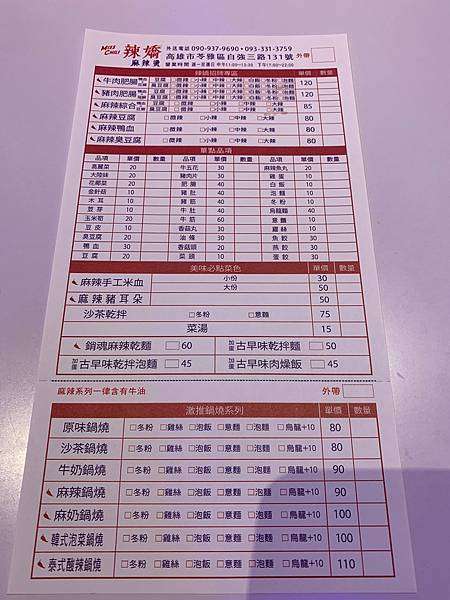 Miss Chili 辣嬌 麻辣燙
外送電話 090-937-9690・093-331-3759
高雄市苓雅區自強三路131號 外帶
辣嬌招牌專區 單價 數量
牛肉肥腸 120
豬肉肥腸 120
麻辣綜合 85
麻辣豆腐 □微辣 □小辣 □中辣 □大辣 80
麻辣鴨血 □微辣 □小辣 □中辣 □大辣 80
麻辣臭豆腐 □微辣 □小辣 □中辣 □大辣 80
單點品項
品項 單價 數量 品項 單價 數量 品項 單價 數量
高麗菜 20 牛五花 30 麻辣魚丸 20
大陸妹 20 豬肉片 30 雞蛋 10
花椰菜 20 肥腸 40 白飯 10
金針菇 10 豬肚 40 泡麵 10
木耳 10 豬筋 40 冬粉 10
豆芽 10 牛肚 40 烏龍麵 40
玉米筍 20 牛筋 60 意麵 10
豆皮 10 香菇丸 30 雞絲 10
臭豆腐 20 油條 30 魚餃 10
鴨血 30 香菇頭 20 燕餃 10
豆腐 20 菜頭 10 蛋餃 10
美味必點菜色 單價 數量
麻辣手工米血 小份 30
大份 50
麻辣豬耳朵 50
沙茶乾拌 □冬粉 □意麵 75
菜湯 15
銷魂麻辣乾麵 □60 加蛋 古早味乾拌麵 □50
加蛋 古早味乾拌泡麵 □45 加蛋 古早味肉燥飯 □45
麻辣系列一律含有牛油 外帶
激推鍋燒系列 單價 數量
原味鍋燒 □冬粉 □雞絲 □泡飯 □意麵 □泡麵 □烏龍+10 80
沙茶鍋燒 □冬粉 □雞絲 □泡飯 □意麵 □泡麵 □烏龍+10 80
牛奶鍋燒 □冬粉 □雞絲 □泡飯 □意麵 □泡麵 □烏龍+10 90
麻辣鍋燒 □冬粉 □雞絲 □泡飯 □意麵 □泡麵 □烏龍+10 90
麻奶鍋燒 □冬粉 □雞絲 □泡飯 □意麵 □泡麵 □烏龍+10 100
韓式泡菜鍋燒 □冬粉 □雞絲 □泡飯 □意麵 □泡麵 □烏龍+10 100
泰式酸辣鍋燒 □冬粉 □雞絲 □泡飯 □意麵 □泡麵 □烏龍+10 110